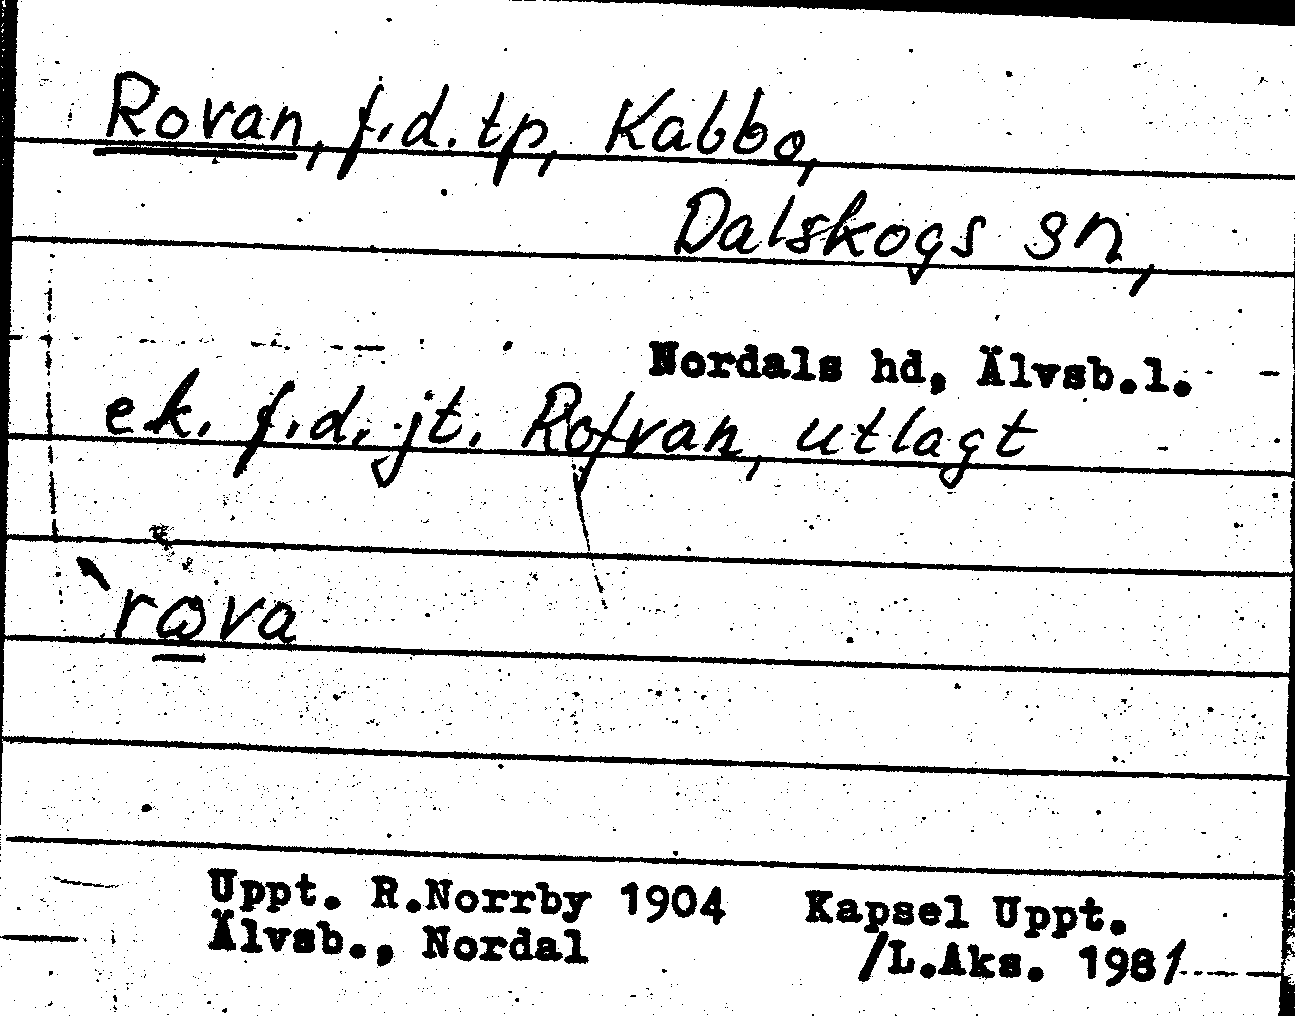 Rovan, f.d. tp, Kabbo,
Dalskogs sn,
Nordals hd, Älvsb.l.
ek. f.d. jt. Rofvan, utlagt
`rωva
Uppt. R.Norrby 1904 Kapsel Uppt.
Älvsb., Nordal /L.Aks. 1981